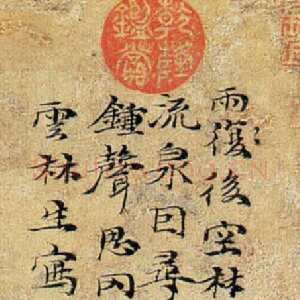 乾隆鑑賞
雨復後空林
流泉曰尋
鍾聲思
雲林生寫